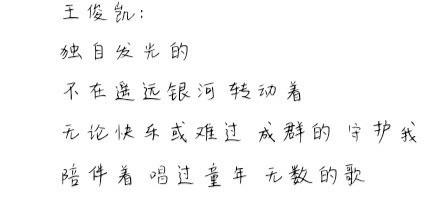 王俊凯:
独自发光的
不在遥远银河转动着
无论快乐或难过 成群的守护我
陪伴着 唱过童年 无数的歌